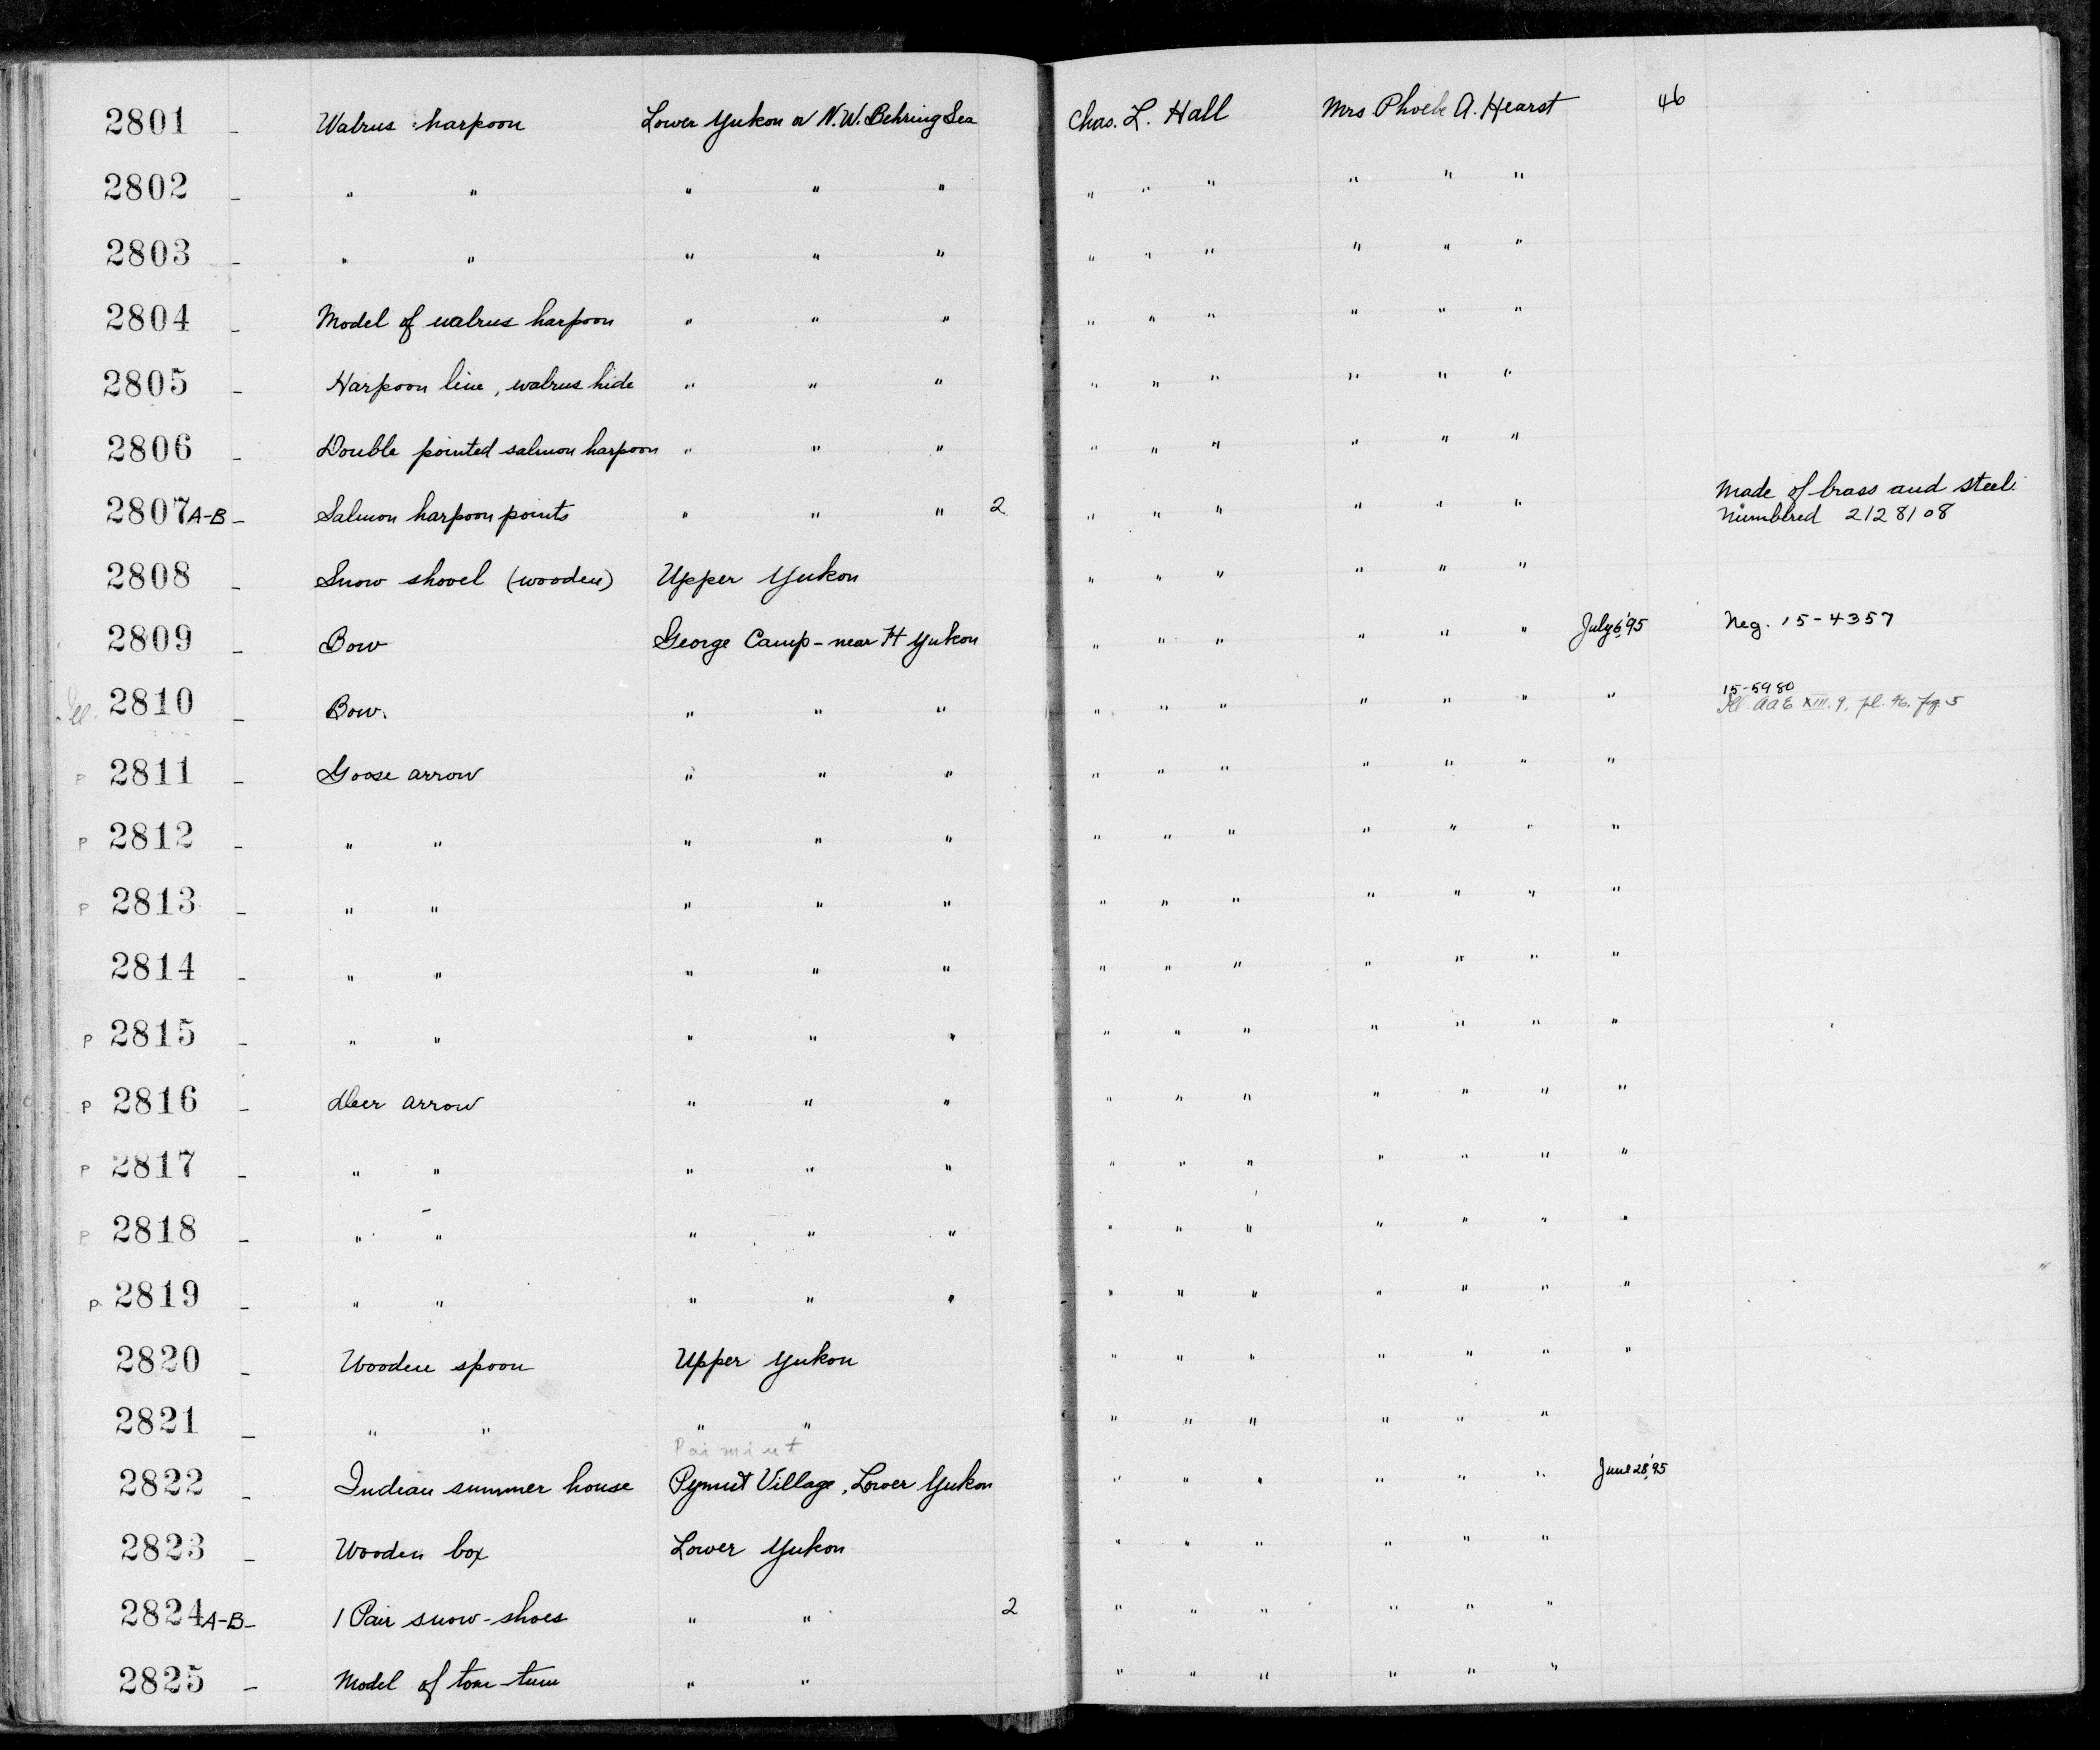 2801 - Walrus harpoon Lower Yukon or N.W. Behring Sea Chas. L. Hall Mrs Phoebe A. Hearst 46
2802 - " " " " " " " " " " "
2803 - " " " " " " " " " " "
2804 - Model of walrus harpoon " " " " " " " " "
2805 - Harpoon line, walrus hide " " " " " " " " "
2806 - Double pointed salmon harpoon " " " " " " " " "
2807 A-B - Salmon harpoon points " " " 2 " " " " " " Made of brass and steel.
Numbered 2128108
2808 - Snow shovel (wooden) Upper Yukon " " " " " "
2809 - Bow George Camp - near Ft Yukon " " " " " " July 6, '95 Neg. 15-4357
15-5980
Ill. 2810 - Bow. " " " " " " " " " " Ill. AAE XIII. 9, pl. 46. fig. 5
P 2811 - Goose arrow " " " " " " " " " "
P 2812 - " " " " " " " " " " " "
P 2813 - " " " " " " " " " " " "
2814 - " " " " " " " " " " " "
P 2815 - " " " " " " " " " " " "
P 2816 - Deer arrow " " " " " " " " " "
P 2817 - " " " " " " " " " " " "
P 2818 - " " " " " " " " " " " "
P 2819 - " " " " " " " " " " " "
2820 - Wooden spoon Upper Yukon " " " " " " "
2821 - " " " " " " " " " "
Paimiut
2822 - Indian summer house Pymut Village, Lower Yukon " " " " " " June 28, '95
2823 - Wooden box Lower Yukon " " " " " "
2824 A-B - 1 Pair snow-shoes " " 2 " " " " " "
2825 - Model of tom-tum " " " " " " " "